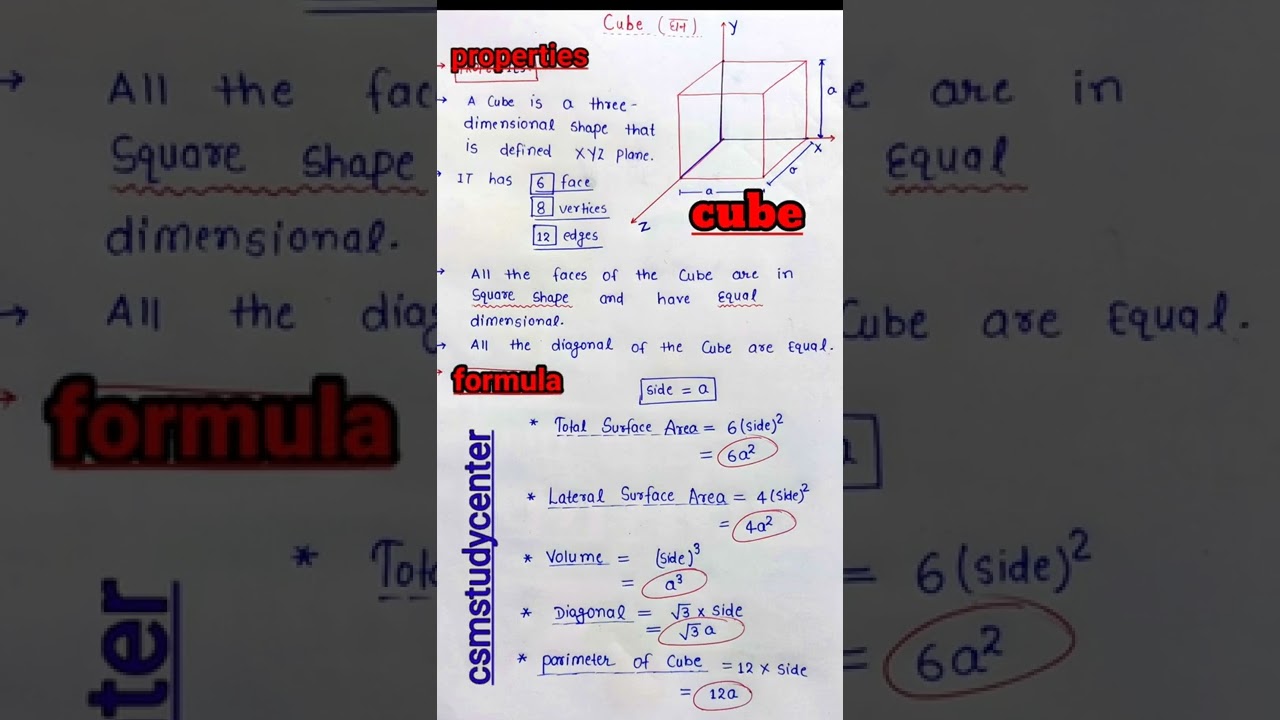 Cube (घन)
Y
properties
→ A Cube is a three-
dimensional shape that
is defined XYZ plane.
a
X
a
a
Z
cube
→ IT has 6 face
8 vertices
12 edges
→ All the faces of the Cube are in
Square shape and have Equal
dimensional.
→ All the diagonal of the Cube are Equal.
formula
side = a
* Total Surface Area = 6(side)²
= 6a²
* Lateral Surface Area = 4(side)²
= 4a²
* Volume = (side)³
= a³
* Diagonal = √3 x side
= √3 a
* parimeter of Cube = 12 x side
= 12a
csmstudycenter
→ All the fac
e are in
Square shape
Equal
dimensional.
→ All the diag
Cube are Equal.
formula
* Tota
= 6(side)²
= 6a²
ter